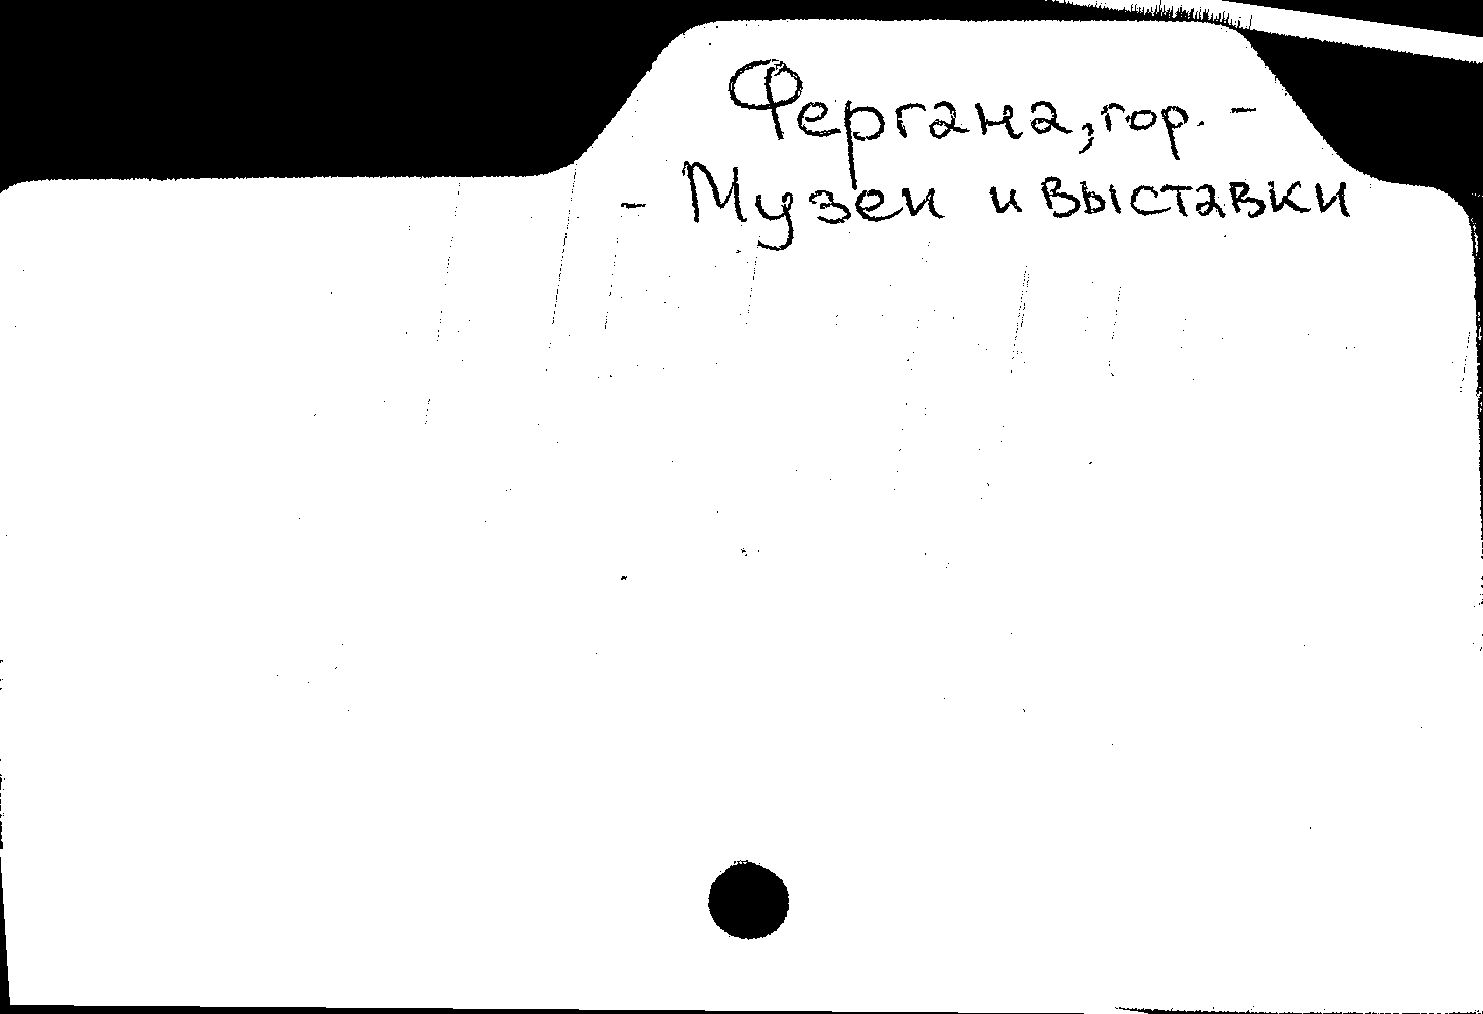 Фергана, гор. -
- Музеи и выставки